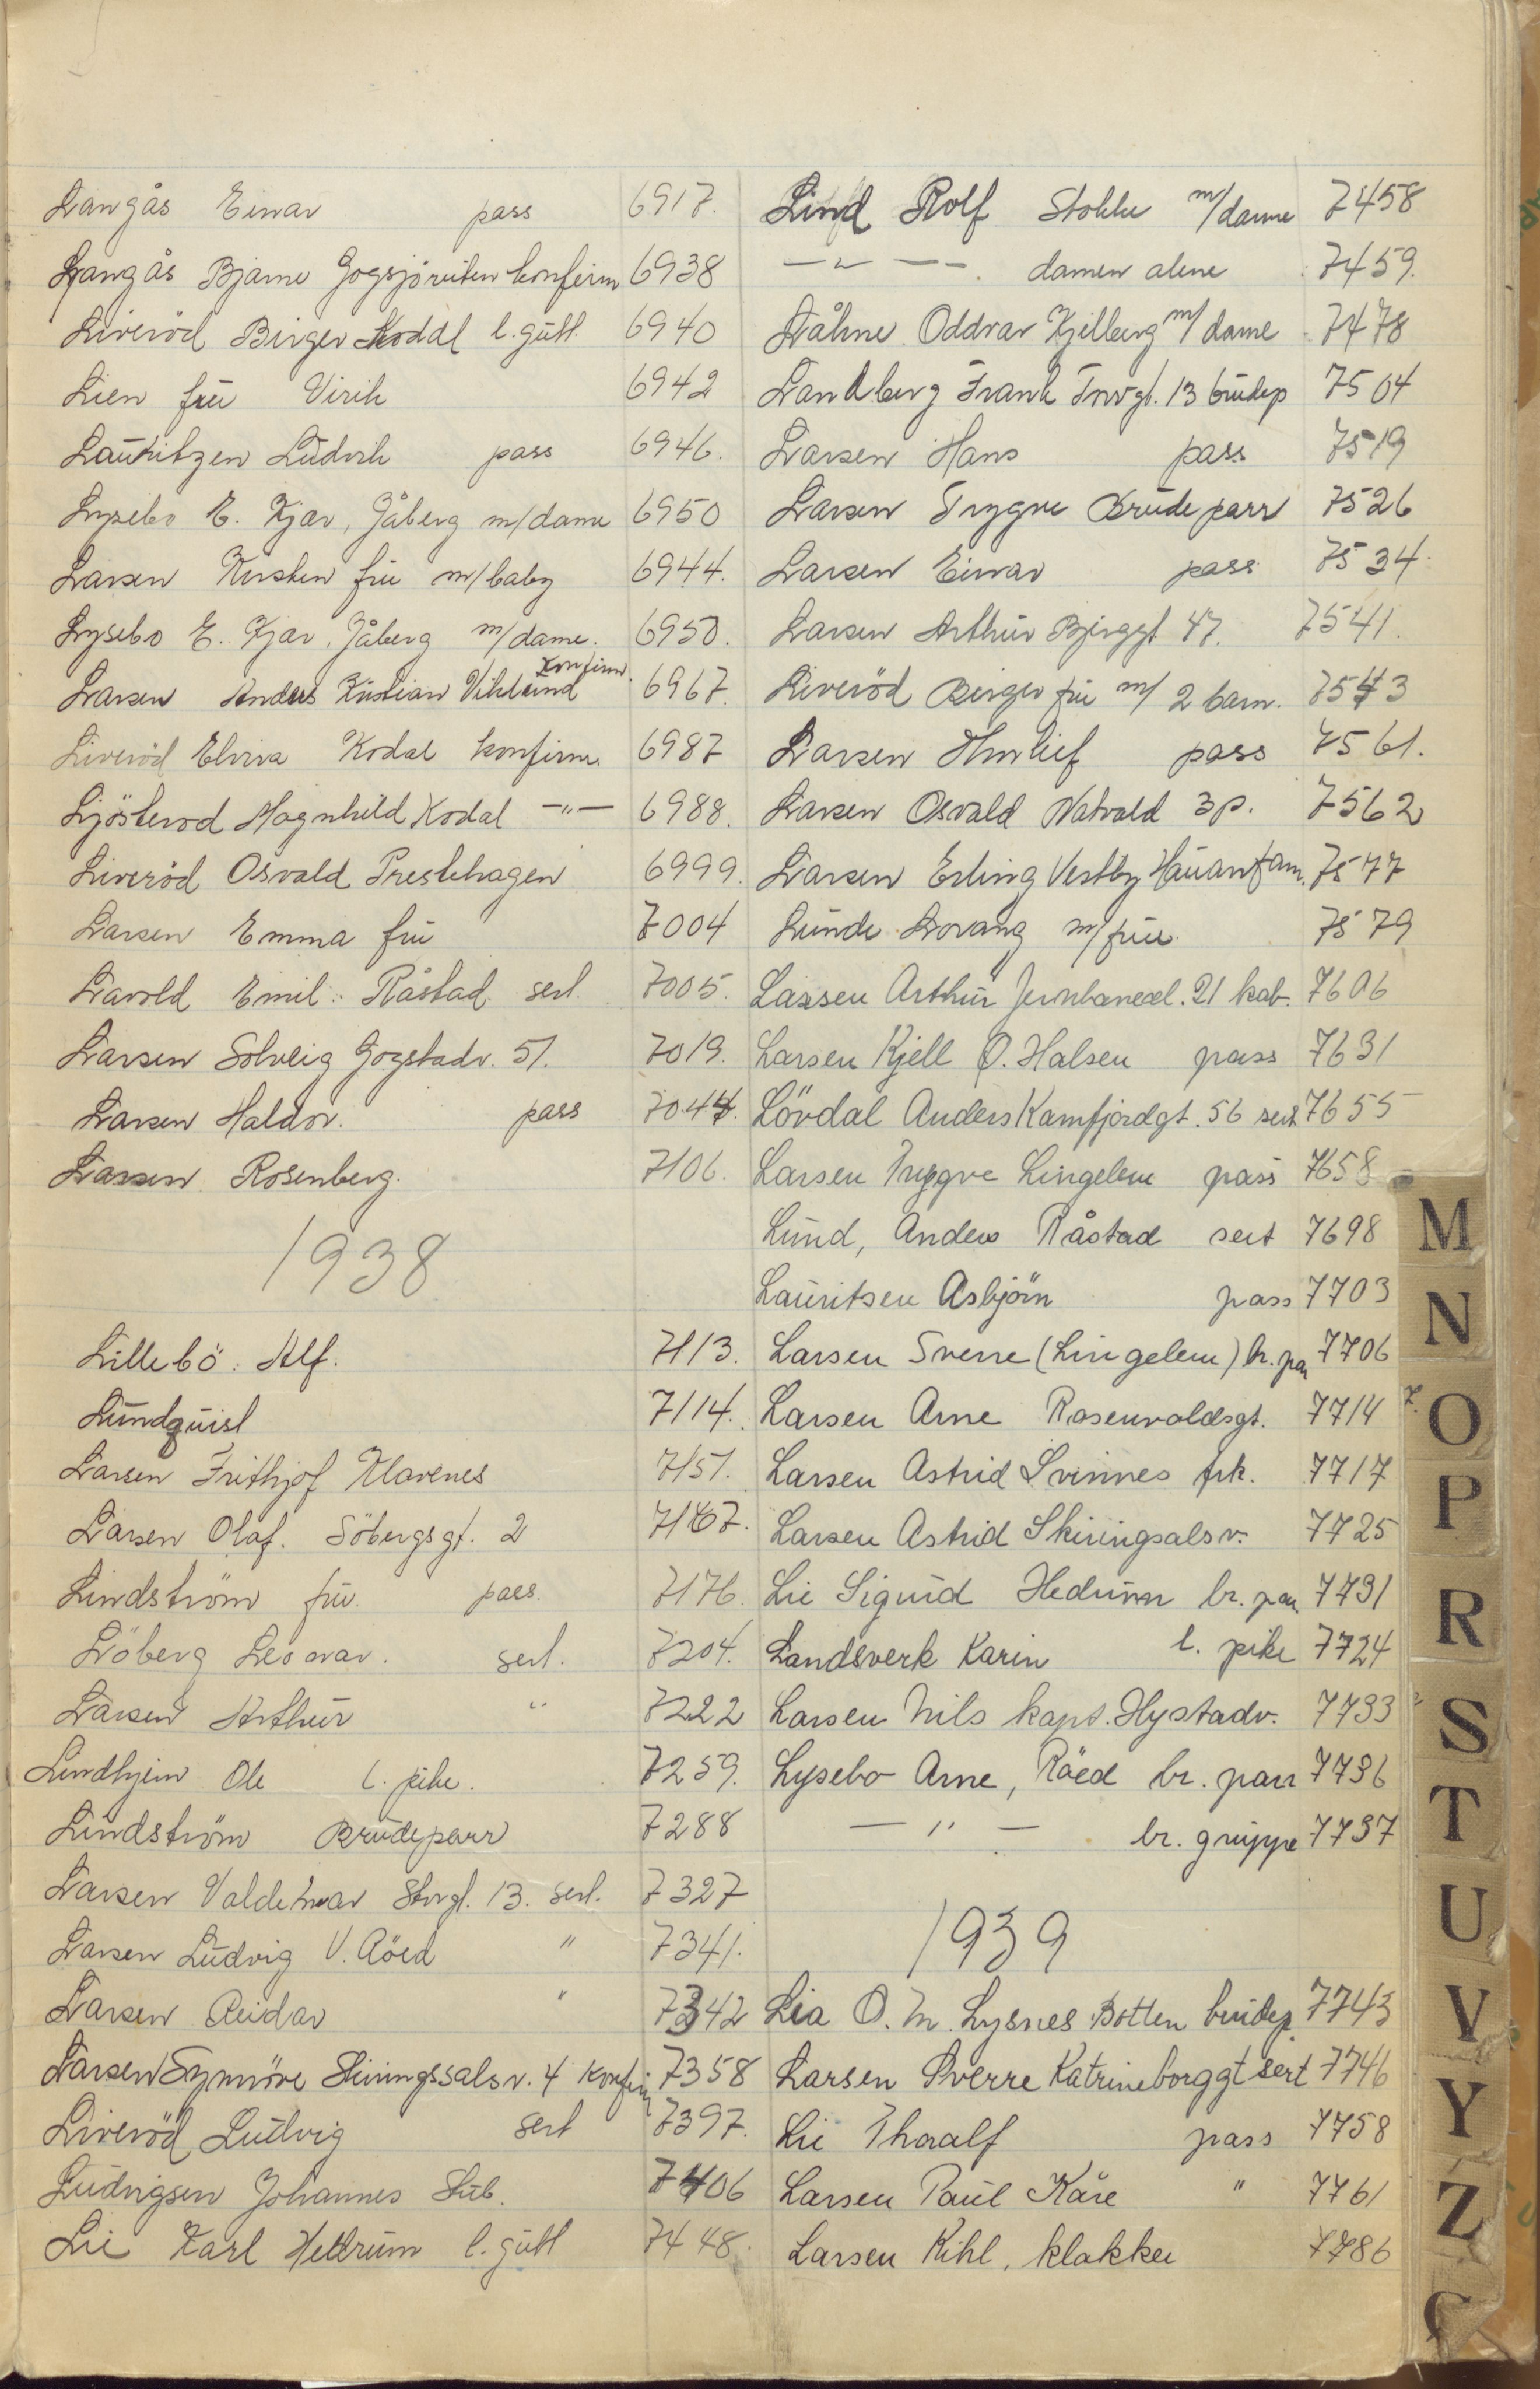 Langås Einar pass 6917.
Langås Bjarne Gogsjöruten konfirm 6938
Liveröd Birger Kodal l. gutt. 6940
Lien fru Virik 6942
Lauritzen Ludvik pass 6946.
Lysebo E. Kjær, Jåberg m/dame 6950
Larsen Kirsten fru m/baby 6944.
Lysebo E. Kjær, Jåberg m/dame. 6950.
Larsen Anders Kristian Viklund konfirm. 6967.
Liveröd Elvira Kodal konfirm. 6987
Ljösterod Magnhild Kodal —"— 6988.
Liveröd Osvald Prestehagen 6999.
Larsen Emma fru 7004
Lavold Emil. Råstad sert. 7005.
Larsen Solveig Gogstadv. 51. 7019.
Larsen Haldor. pass 7044.
Larsen Rosenberg. 7106.
1938
Lillebö. Alf. 7113.
Lundquist 7114.
Larsen Frithjof Klavenes 7151.
Larsen Olaf. Söbergsgt. 2 7167.
Lindström fru. pass. 7176.
Löberg Leonar. sert. 7204.
Larsen Arthur " 7222
Lindhjem Ole l. pike. 7259.
Lindström Brudeparr 7288
Larsen Valdemar Storgt. 13. sert. 7327
Larsen Ludvig V. Röed " 7341.
Larsen Reidar " 7342
Larsen Synnöve Skiringssalsv. 4 konfirm 7358
Liveröd Ludvig sert 7397.
Ludvigsen Johannes Sub. 7406
Lie Karl Hedrum l. gutt 7448.
Lind Rolf Stokke m/dame 7458
—"—. damen alene 7459.
Låhne Oddvar Kjellberg m/dame 7478
Landberg Frank Torvgt. 13 brudep 7504
Larsen Hans pass 7519
Larsen Trygve Brudeparr 7526
Larsen Einar pass 7534.
Larsen Arthur Bjerggt 47. 7541.
Liveröd Birger fru m/ 2 barn. 7543
Larsen Thorleif pass 7561.
Larsen Osvald Natvald 3 p. 7562
Larsen Erling Vestby Hauan fam. 7577
Lunde Lovang m/frue 7579
Larsen Arthur Jernbaneal. 21 kab. 7606
Larsen Kjell Ö. Halsen pass 7631
Lövdal Anders Kamfjordgt. 56 sert 7655
Larsen Trygve Lingelem pass 7658
Lund, Anders Råstad sert 7698
Lauritsen Asbjörn pass 7703
Larsen Sverre (Lingelem) br. par 7706
Larsen Arne Rosenvoldsgt. 7714
Larsen Astrid Svinnes frk. 7717
Larsen Astrid Skiringsalsv. 7725
Lie Sigurd Hedrum br. par. 7731
Landsverk Karin l. pike 7724
Larsen Nils kapt. Hystadv. 7733
Lysebo Arne, Röed br. parr 7736
— " — br. gruppe 7737
1939
Lia O. M. Lysnes Botten brudep. 7743
Larsen Sverre Katrineborggt sert 7746
Lie Thoralf pass 7758
Larsen Paul Kåre " 7761
Larsen Kihl, klokker 7786
M
N
O
P
R
S
T
U
V
Y
Z